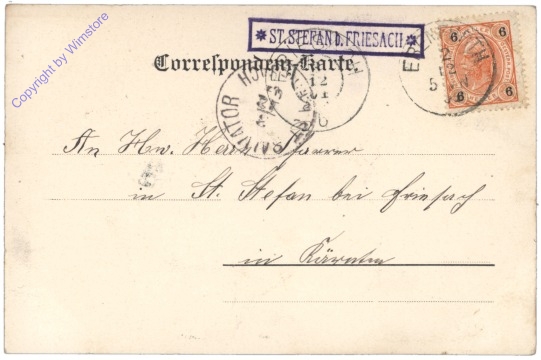 * ST. STEFAN b. FRIESACH *
Correspondenz-Karte.
6 6
6 6
An Hw. Herrn Pfarrer
in St. Stefan bei Friesach
in Kärnten
Copyright by Wimstore